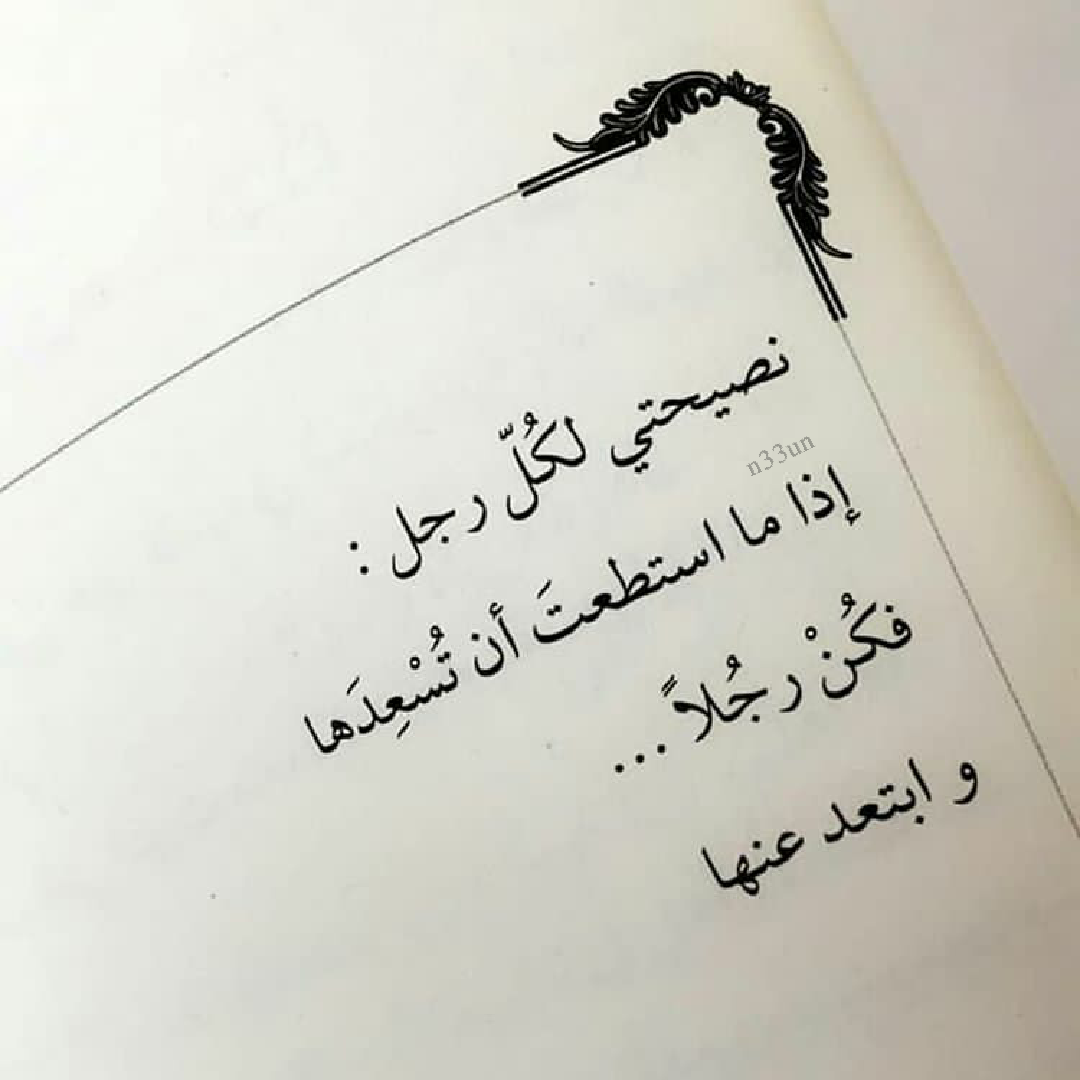 نصيحتي لكُلّ رجل :
n33un
إذا ما استطعتَ أن تُسْعِدَها
فكُنْ رجُلاً ...
و ابتعد عنها